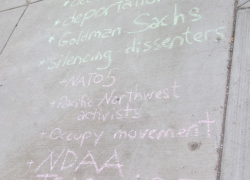 deportation
+ Goldman Sachs
+ Silencing dissenters
+NATO5
+Pacific Northwest
activists
+Occupy movement
+NDAA